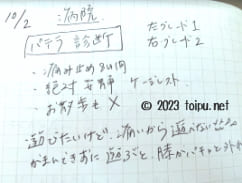 10/2 病院
パテラ 診断
左グレード1
右グレード2
・痛み止め 8日間
・絶対 安静 ケージレスト
・お散歩も ×
© 2023 toipu.net
遊びたいけど、痛いから遊べない
がまんできずに 遊ぶと、膝がパキッと外れ